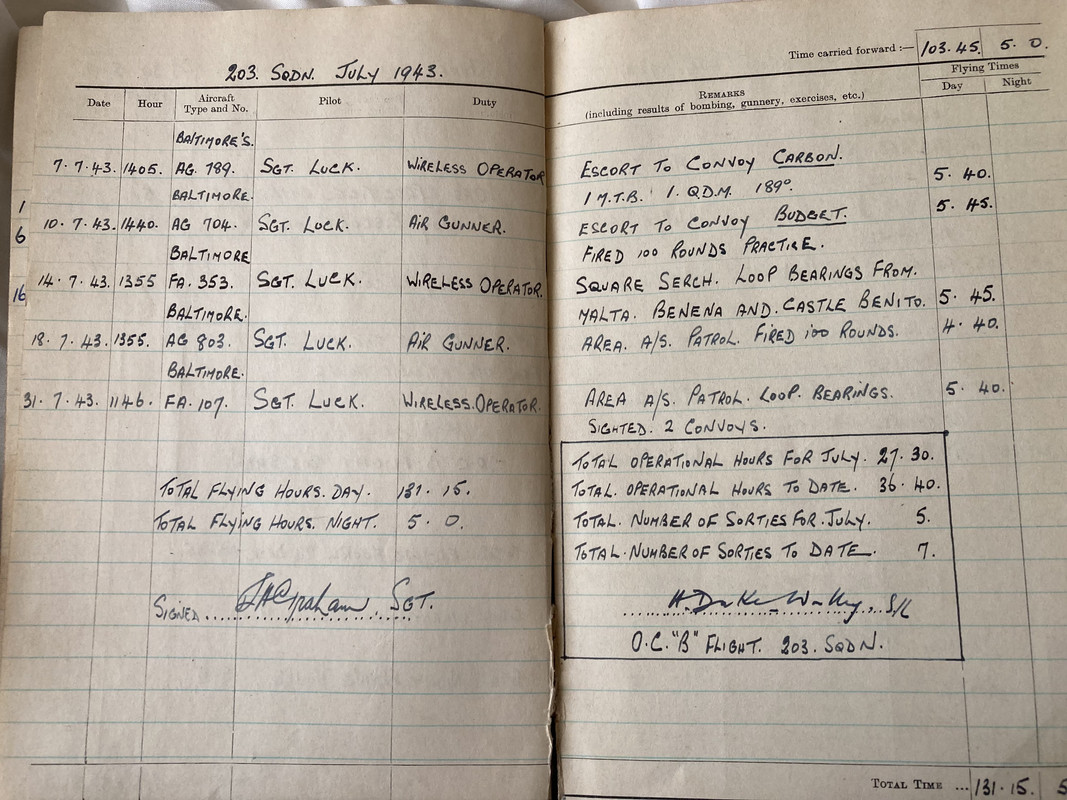 203. SQDN. JULY 1943.
Date Hour Aircraft Type and No. Pilot Duty
BALTIMORE'S.
7. 7. 43. 1405. AG. 789. SGT. LUCK. WIRELESS OPERATOR
BALTIMORE.
10. 7. 43. 1440. AG 704. SGT. LUCK. AIR GUNNER.
BALTIMORE
14. 7. 43. 1355 FA. 353. SGT. LUCK. WIRELESS OPERATOR.
BALTIMORE.
18. 7. 43. 1355. AG 803. SGT. LUCK. AIR GUNNER.
BALTIMORE.
31. 7. 43. 1146. FA. 107. SGT. LUCK. WIRELESS. OPERATOR.
TOTAL FLYING HOURS. DAY. 131. 15.
TOTAL FLYING HOURS. NIGHT. 5. 0.
SIGNED ... JAGraham. SGT.
1
6
16
Time carried forward :— 103.45. 5. 0.
REMARKS
(including results of bombing, gunnery, exercises, etc.)
Flying Times
Day Night
ESCORT TO CONVOY CARBON.
1 M.T.B. 1. Q.D.M. 189°. 5. 40.
ESCORT TO CONVOY BUDGET. 5. 45.
FIRED 100 ROUNDS PRACTISE.
SQUARE SERCH. LOOP BEARINGS FROM.
MALTA. BENENA AND. CASTLE BENITO. 5. 45.
AREA. A/S. PATROL. FIRED 100 ROUNDS. 4. 40.
AREA A/S. PATROL. LOOP. BEARINGS. 5. 40.
SIGHTED. 2 CONVOYS.
TOTAL OPERATIONAL HOURS FOR JULY. 27. 30.
TOTAL. OPERATIONAL HOURS TO DATE. 36. 40.
TOTAL. NUMBER OF SORTIES FOR. JULY. 5.
TOTAL. NUMBER OF SORTIES TO DATE. 7.
S/L
O.C. "B" FLIGHT. 203. SQDN.
TOTAL TIME ... 131. 15. 5